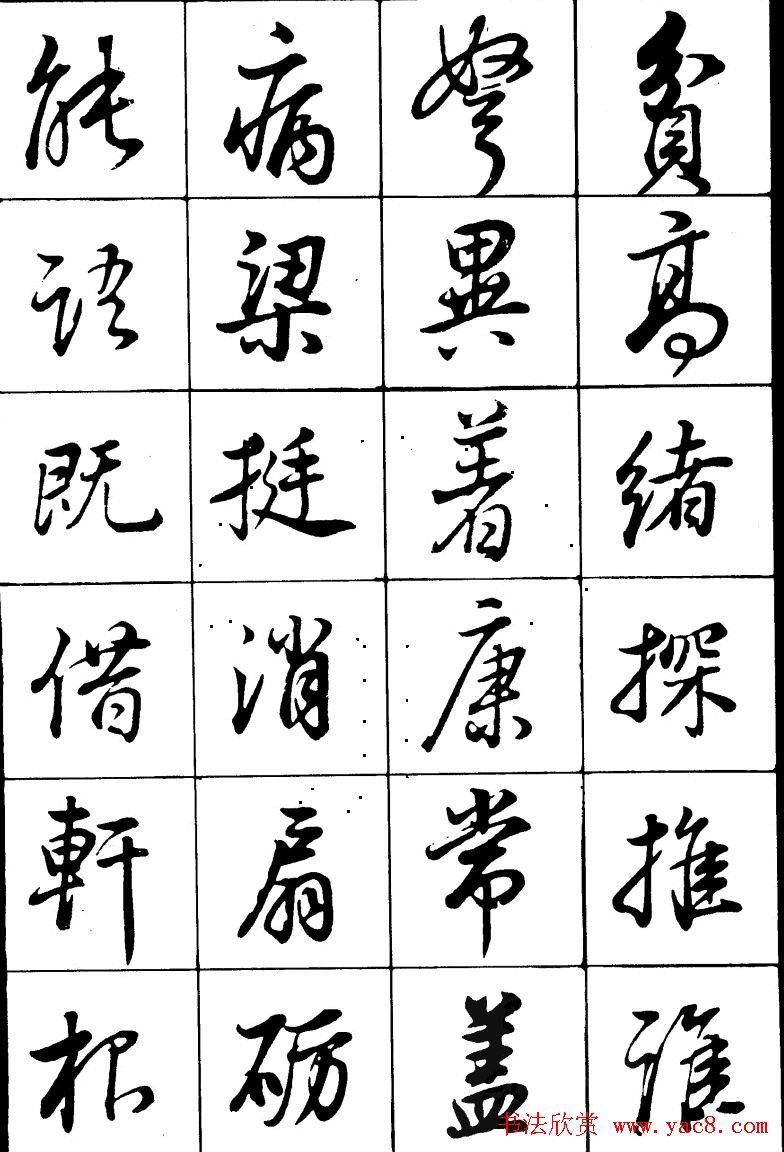 貧高绪探推谁
弩異着康常盖
病梁挺消扇砺
能语既借軒根
书法欣赏 www.yac8.com